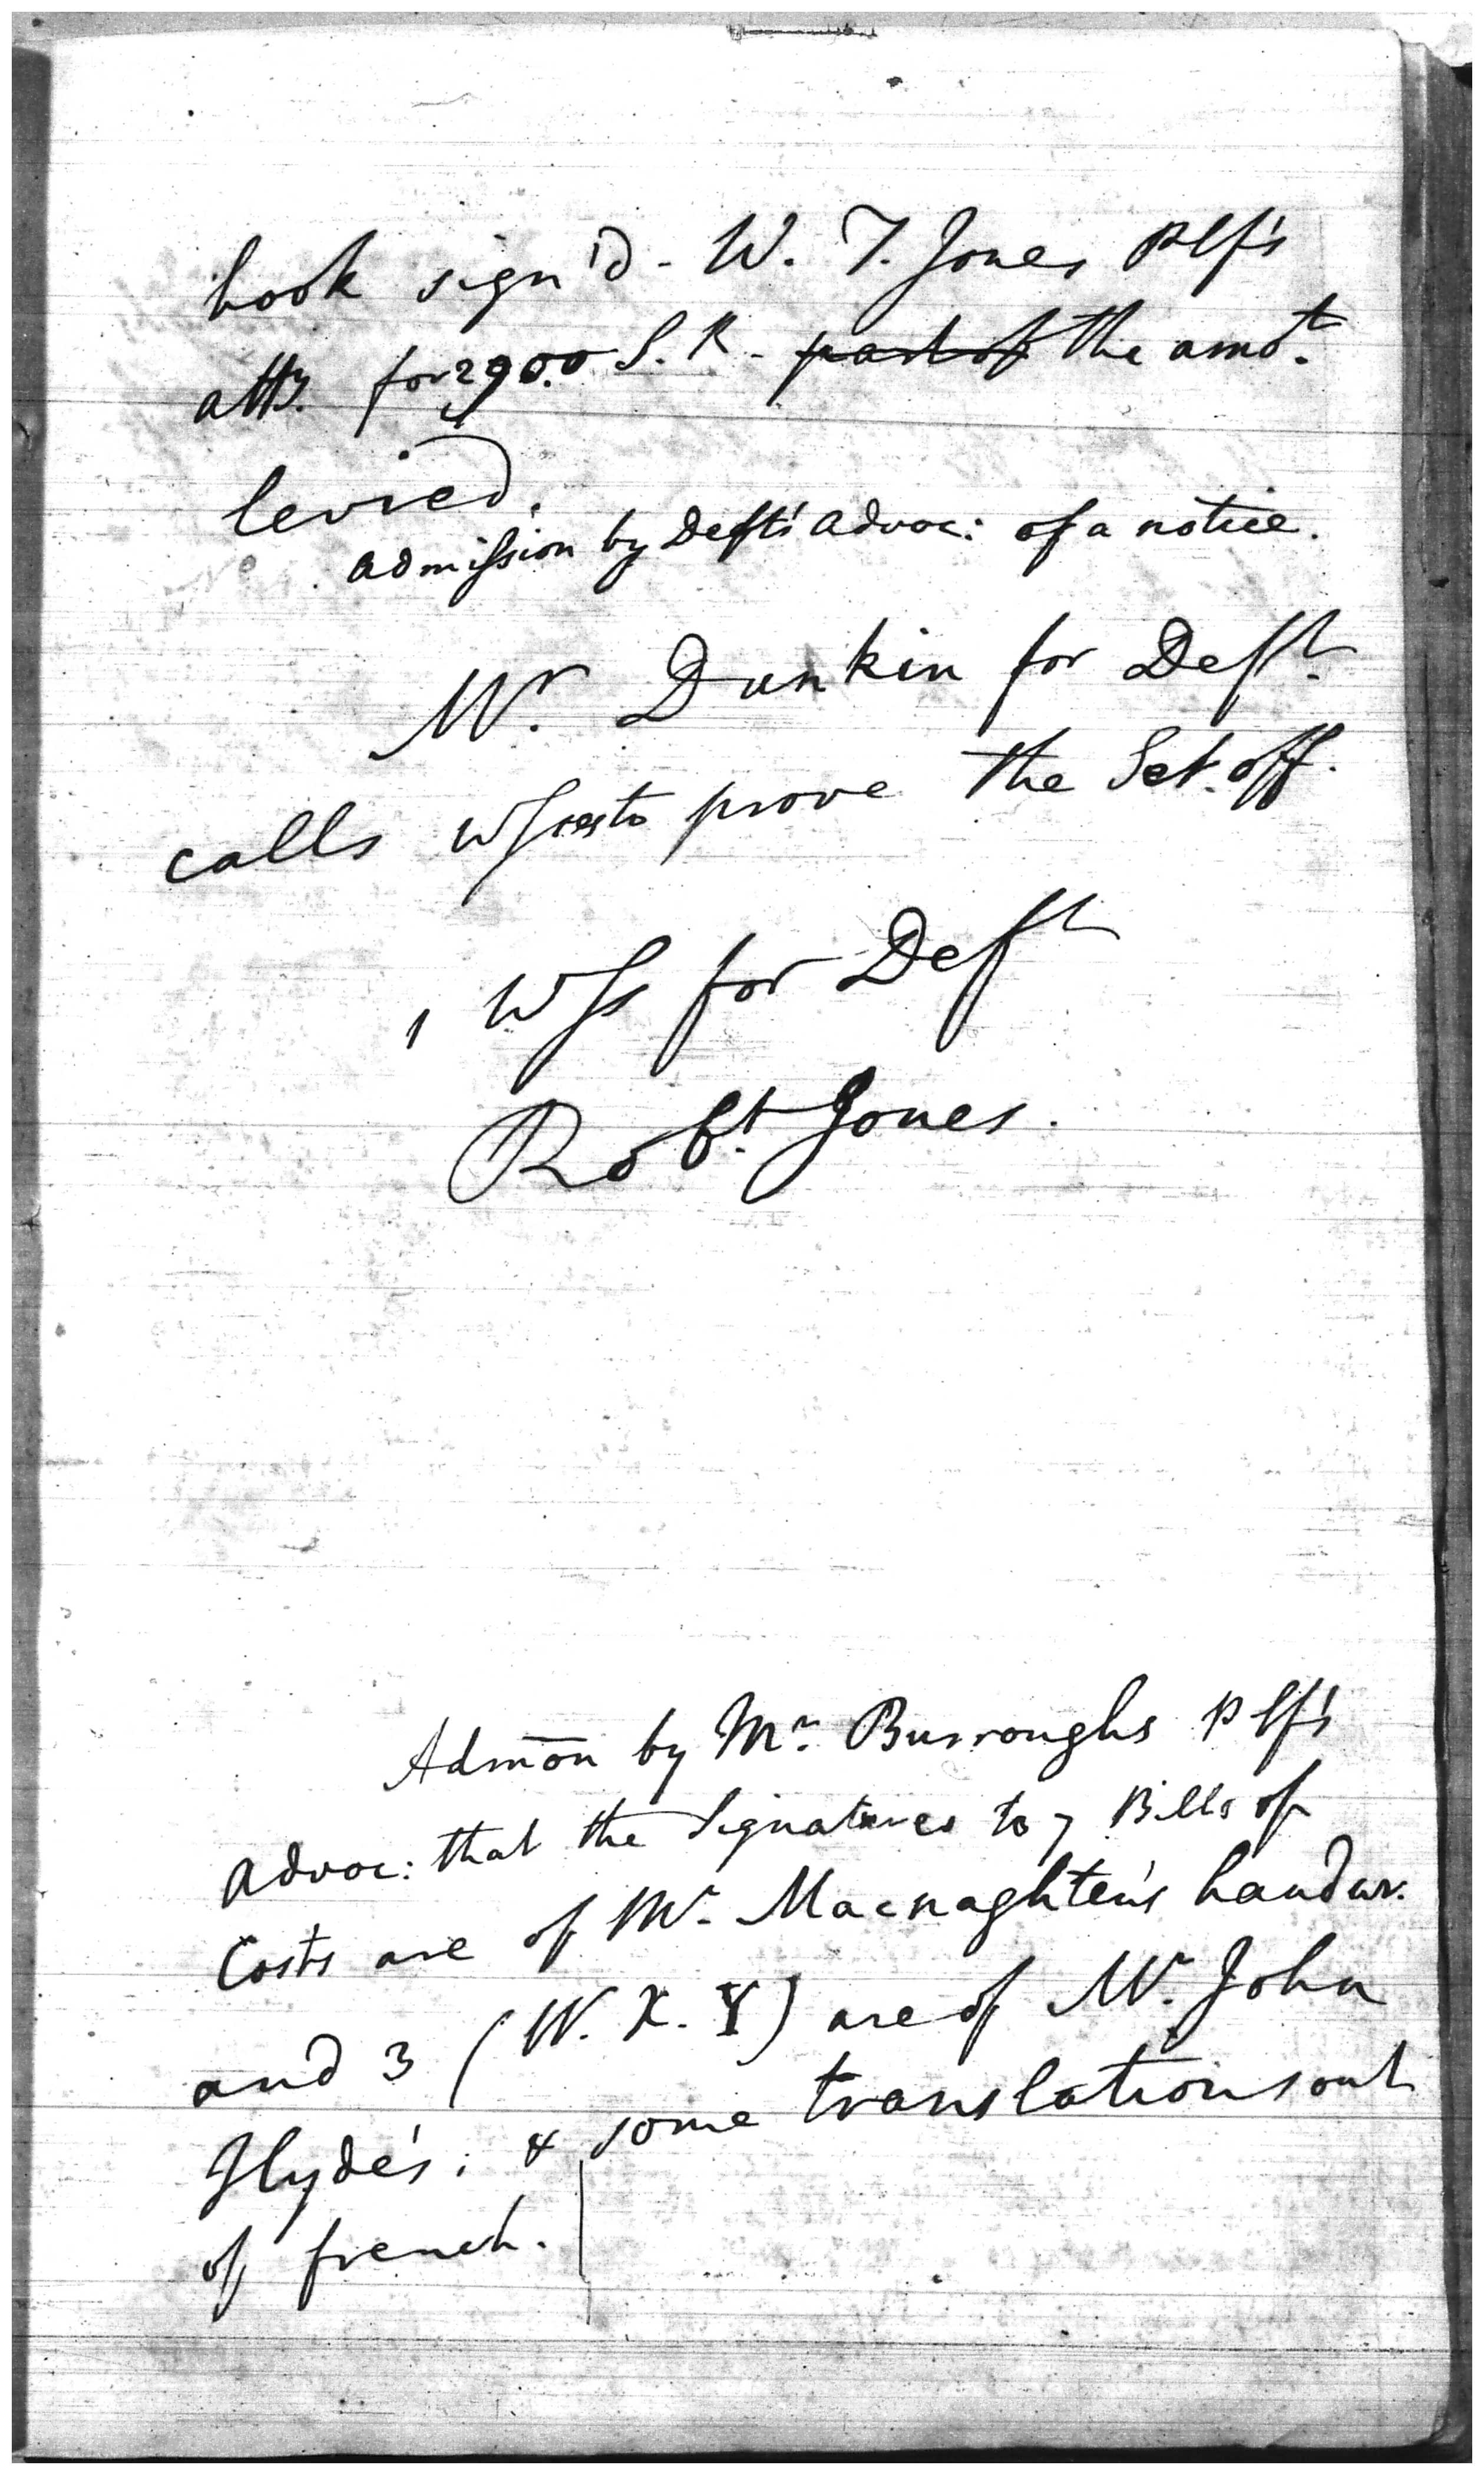 book sign'd - W. T. Jones Plf's
atty. for 2900 S. R. - part of the amot.
levied.
admission by Deft's advoc: of a notice.
Mr. Dunkin for Deft.
calls wsses to prove the Set-off.
1 Wss for Deft
Robt. Jones.
Admōn by Mr. Burroughs Plf's
advoc: that the Signatures to 7 Bills of
Costs are of Mr. Macnaghten's handwr.
and 3 (W. X. Y) are of Mr. John
Hyde's; & some translations out
of french.